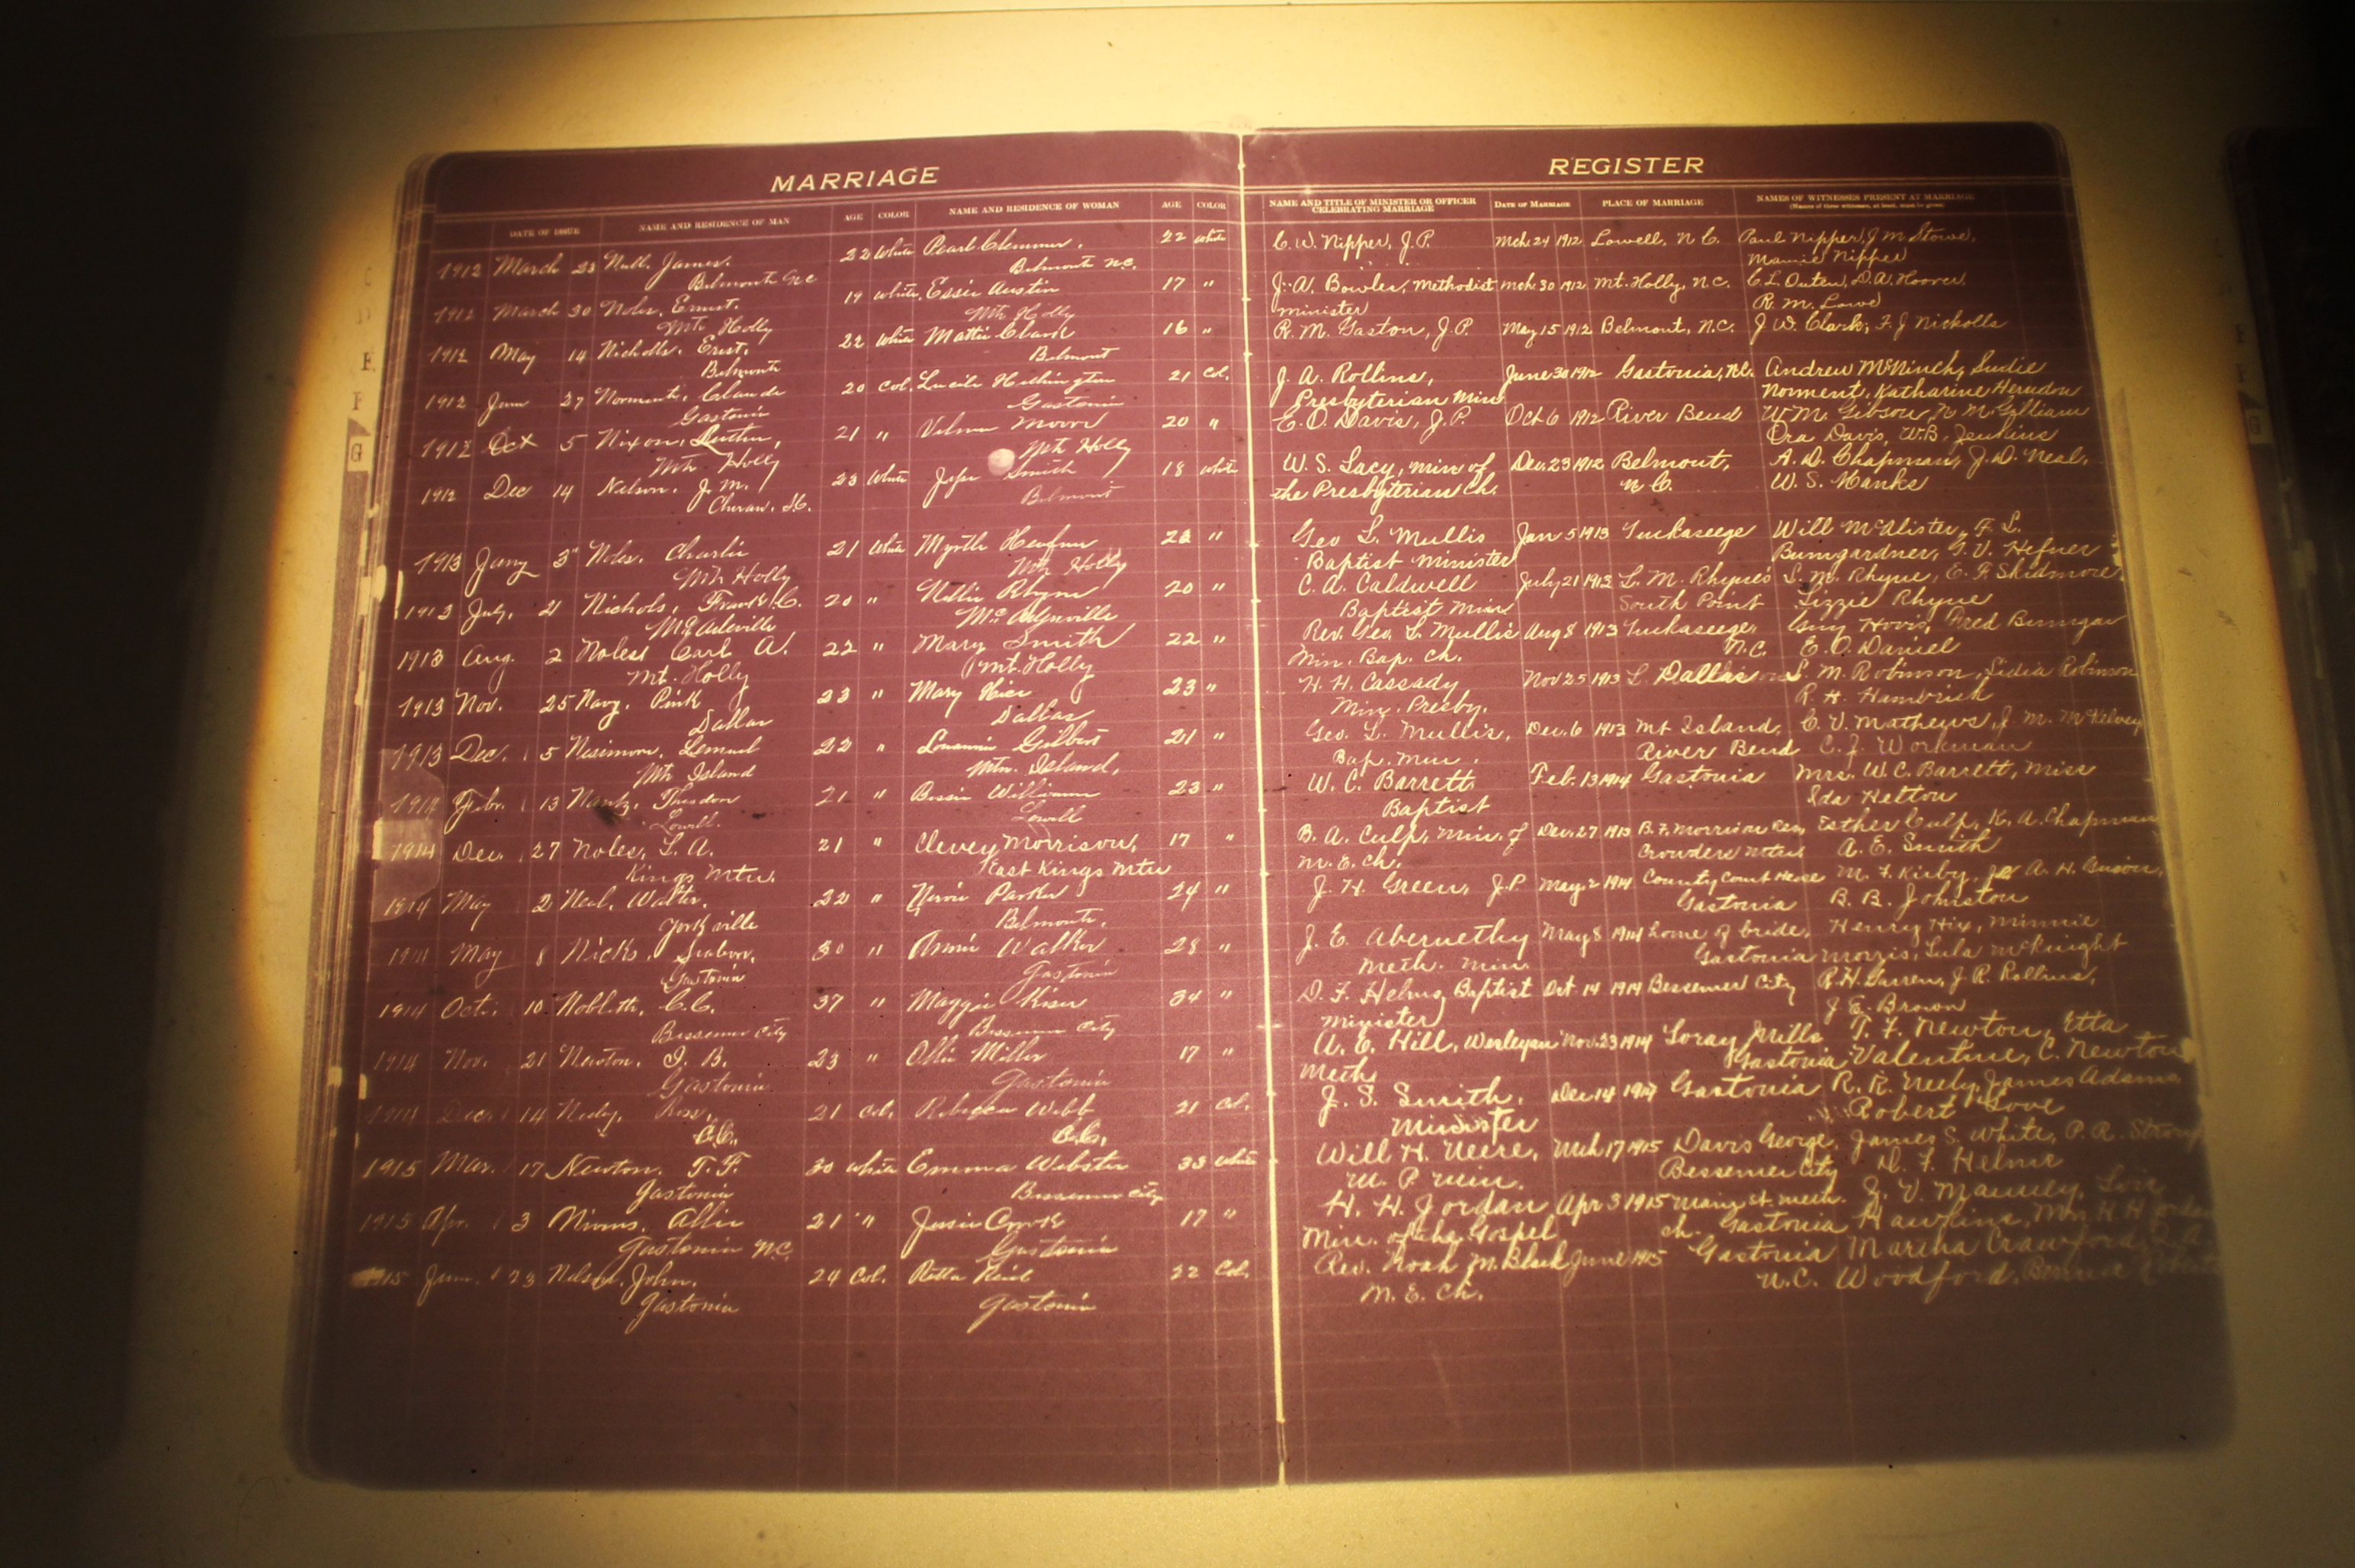 MARRIAGE
REGISTER
DATE OF ISSUE NAME AND RESIDENCE OF MAN AGE COLOR NAME AND RESIDENCE OF WOMAN AGE COLOR
NAME AND TITLE OF MINISTER OR OFFICER CELEBRATING MARRIAGE DATE OF MARRIAGE PLACE OF MARRIAGE NAMES OF WITNESSES PRESENT AT MARRIAGE
(Names of three witnesses, at least, must be given)
1912 March 23 Null, James. 22 White Pearl Clemmer. 22 White C. W. Nipper, J.P. Mch. 24 1912 Lowell, N C. Paul Nipper, J M Stowe,
Belmont NC Belmont N.C. Mamie Nipper
1912 March 30 Noles, Ernest. 19 White, Essie Austin 17 " J. A. Bowles, Methodist Mch. 30 1912 Mt. Holly, N.C. C. L. Outen, D. A. Hoover
Mt Holly Mt Holly minister R. M. Lowe
1912 May 14 Nicholls, Ernst. 22 White Mattie Clark 16 " R. M. Gaston, J.P. May 15 1912 Belmont, N.C. J W. Clark, F. J Nickolls
Belmont Belmont
1912 June 27 Norment, Claude 20 Col. Lucile 21 Col. J. A. Rollins, June 30 1912 Gastonia, N.C. Andrew McNinch, Sudie
Gastonia Gastonia Presbyterian Min Norment, Katharine Herndon
1912 Oct 5 Nixon, 21 " Velma Moore 20 " E. O. Davis, J.P. Oct 6 1912 River Bend W M. Gibson, N M Gilliam
Mt. Holly Mt Holly Ora Davis, W.B. Jenkins
1912 Dec 14 Nelson, J. M. 23 White Smith 18 White W. S. Lacy, Min of Dec. 23 1912 Belmont, A. D. Chapman, J. D. Neal,
Cheraw, S.C. Belmont the Presbyterian Ch. N C. W. S. Hanks
1913 Jany 3" Noles, Charlie 21 White Myrtle 22 " Geo L. Mullis Jan 5 1913 Tuckaseege Will McAlister, F. L.
Mt Holly Mt Holly Baptist Minister Bumgardner, G. V. Hefner
1913 July, 21 Nichols, Frank C. 20 " Nellie Rhyne 20 " C. A. Caldwell July 21 1913 L. M. Rhyne's L. M. Rhyne, E. F. Skidmore,
Baptist Min South Point Lizzie Rhyne
1913 Aug. 2 Noles Carl A. 22 " Mary Smith 22 " Rev. Geo. L. Mullis Aug 8 1913 Tuckaseege, Guy Hovis, Fred Bumgar
Mt. Holly Mt. Holly Min. Bap. Ch. N.C. E. O. Daniel
1913 Nov. 25 Navy, Pink 23 " Mary 23 " H. H. Cassady Nov 25 1913 Dallas L. M. Robinson, Lidia Robinson
Dallas Dallas Min. Presby. R. H. Hambrick
1913 Dec. 5 Lemuel 22 " Gilbert 21 " Geo. L. Mullis, Dec. 6 1913 Mt Island, C. V. Mathews, J. M. McKelvey
Mt Island Mtn. Island, Bap. Min. River Bend C. J. Workman
1914 Febr. 13 Nantz, 21 " Bessie Williams 23 " W. C. Barrett Feb. 13 1914 Gastonia Mrs. W. C. Barrett, Miss
Lowell Lowell Baptist Ida Hetton
1914 Dec. 27 Noles, L. A. 21 " Clevey Morrison, 17 " B. A. Culp, Min. of Dec. 27 1913 B. F. Morrison Res, Esther Culp, K. A. Chapman
Kings Mtn. East Kings Mtn M. E. Ch. Crowders Mtn. A. E. Smith
1914 May 2 Neal, Walter. 22 " Parker 24 " J. H. Green, J.P May 2 1914 County Court House M. F. Kirby, A. H. Guion,
Yorkville Belmont. Gastonia B. B. Johnston
May 8 Nicks, 30 " Annie Walker 28 " J. E. Abernethy May 8 1914 home of bride, Henry Hix, Minnie
Gastonia Gastonia Meth. Min. Gastonia Morris, Lula McKnight
1914 Oct. 10 C.C. 37 " Maggie Kiser 34 " D. F. Helms Baptist Oct 14 1914 Bessemer City R. H. Garren, J. R. Rollins,
Bessemer City Bessemer City Minister J. E. Brown
1914 Nov. 21 Newton, J. B. 23 " Ollie Miller 17 " A. E. Hill, Wesleyan Nov. 23 1914 Loray Mills T. F. Newton, Etta
Gastonia Gastonia Meth Gastonia Valentine, C. Newton
Dec. 14 Neely, Ross, 21 Col. Rebecca Webb 21 Col. J. S. Smith, Dec 14 1914 Gastonia R. R. Neely, James Adams
B.C. B.C. Minister Robert Love
1915 Mar. 17 Newton, T. F. 30 White Emma Webster 33 White Will H. Neese, Mch 17 1915 Davis George, James S. White, P. R.
Gastonia Bessemer City M P Min. Bessemer City D. F. Helms
1915 Apr. 3 Nivens, Allie 21 " Jessie Crook 17 " H. H. Jordan Apr 3 1915 Main St. Meth. J. V. Mauney, Lois
Gastonia N.C. Gastonia Min. of the Gospel Ch. Gastonia Hawkins, Mrs. H. H Jordan
1915 June 23 Nelson, John. 24 Col. Retta Reid 22 Col. Rev. Noah M. Black June 1915 Gastonia Martha Crawford,
Gastonia Gastonia M. E. Ch. N.C. Woodford,